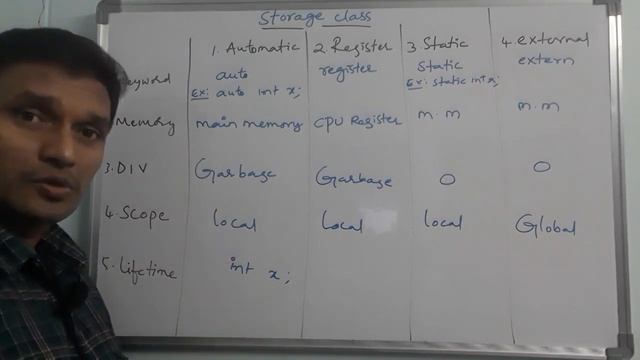 Storage class
1. Automatic 2. Register 3. Static 4. external
Keyword auto register static extern
Ex: auto int x; Ex: static int x;
Memory main memory CPU Register m.m m.m
3. DIV Garbage Garbage 0 0
4. Scope local local local Global
5. Lifetime int x;